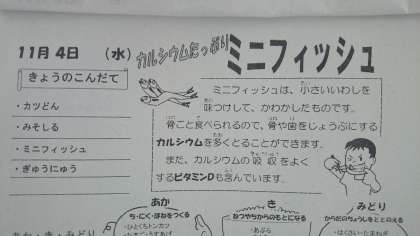 11月4日 (水)
カルシウムたっぷり
ミニフィッシュ
きょうのこんだて
・カツどん
・みそしる
・ミニフィッシュ
・ぎゅうにゅう
ミニフィッシュは、小さいいわしを
味つけして、かわかしたものです。
骨ごと食べられるので、骨や歯をじょうぶにする
カルシウムを多くとることができます。
また、カルシウムの吸収をよく
するビタミンDも含んでいます。
あか
ち・にく・ほねをつくる
・ひとくちトンカツ
き
ねつやちからのもとになる
・あぶら
みどり
からだのちょうしをととのえる
・はくさい・たまねぎ
あか・き・みどり